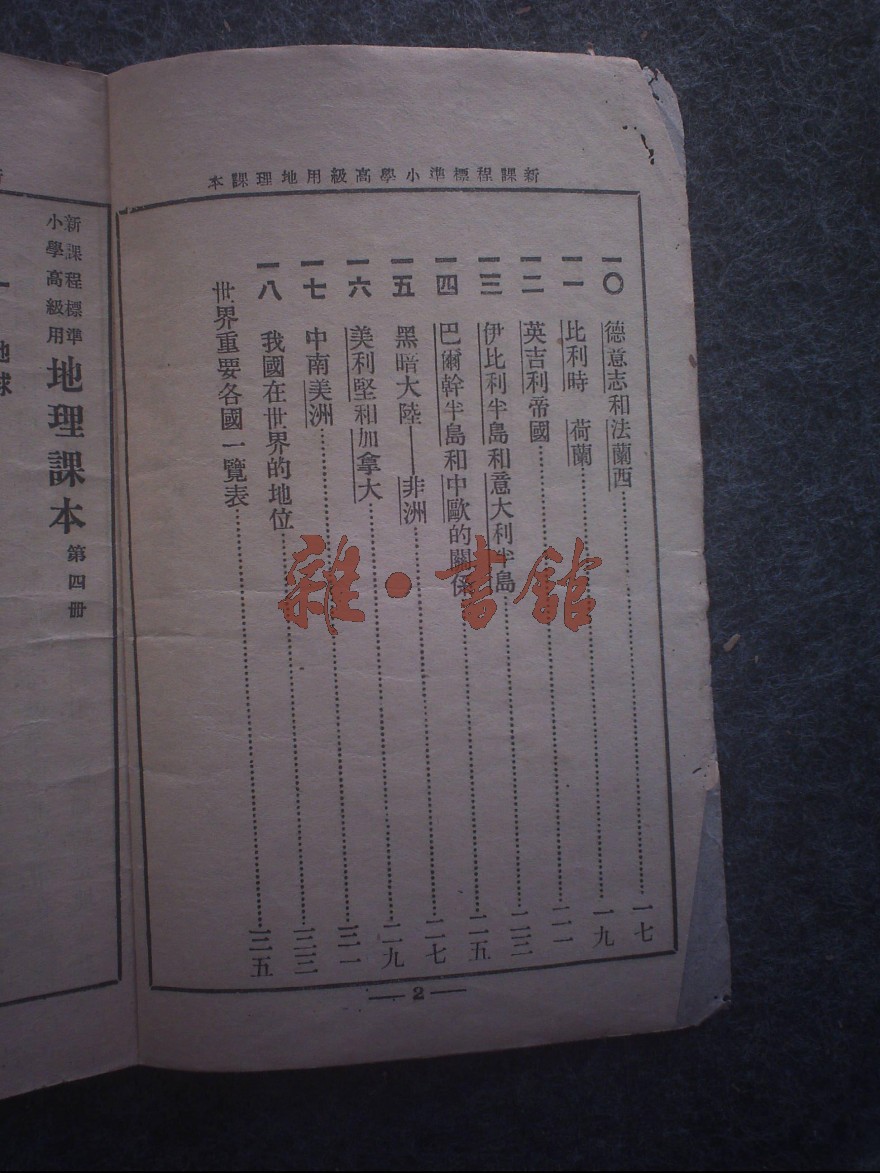 新課程標準小學高級用地理課本
一〇 德意志和法蘭西……一七
一一 比利時 荷蘭……一九
一二 英吉利帝國……二一
一三 伊比利半島和意大利半島……二三
一四 巴爾幹半島和中歐的關係……二五
一五 黑暗大陸——非洲……二七
一六 美利堅和加拿大……二九
一七 中南美洲……三一
一八 我國在世界的地位……三三
世界重要各國一覽表……三五
— 2 —
新課程標準
小學高級用
地理課本 第四冊
一 地球
雜·書館